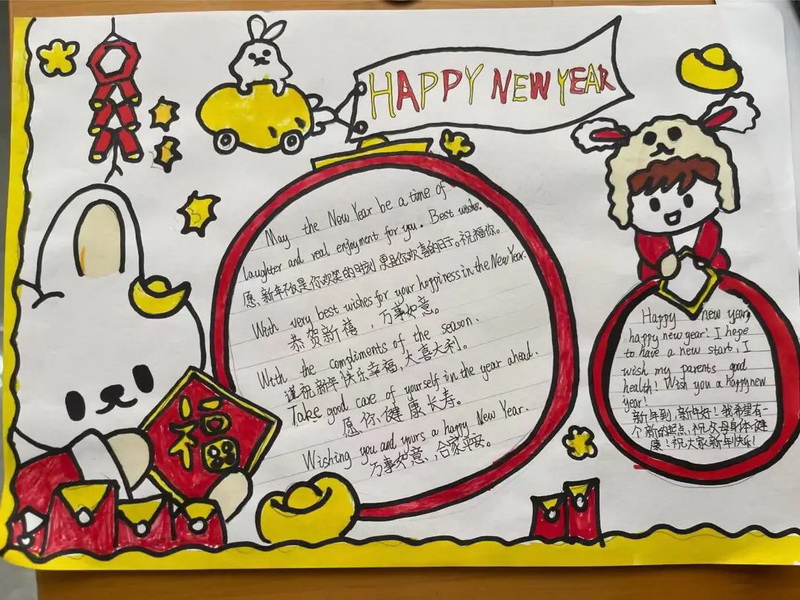 HAPPY NEW YEAR
May the New Year be a time of
laughter and real enjoyment for you. Best wishes.
愿新年不仅是你欢笑的时刻,更是你欢喜的日子。祝福你。
With very best wishes for your happiness in the New Year.
恭贺新禧,万事如意。
With the compliments of the season.
谨祝新年快乐幸福,大喜大利。
Take good care of yourself in the year ahead.
愿你健康长寿。
Wishing you and yours a happy New Year.
万事如意,合家平安。
福
Happy new year,
happy new year! I hope
to have a new start, I
wish my parents good
health! Wish you a happy new
year!
新年到,新年好!我希望有一
个新的起点,祝父母身体健
康!祝大家新年快乐!